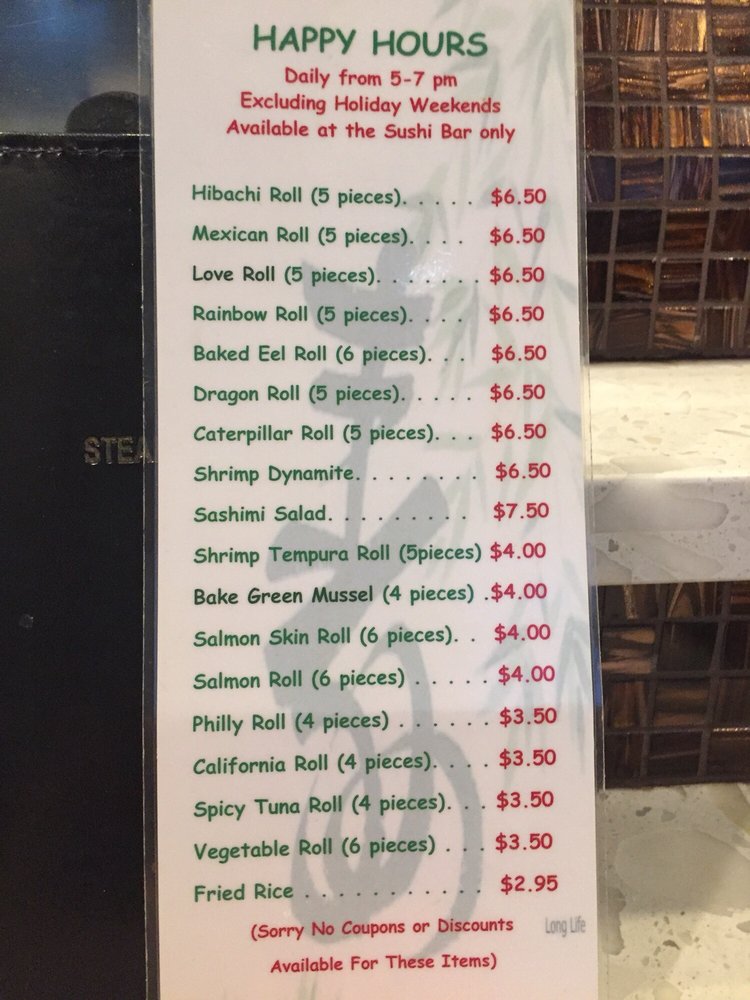 HAPPY HOURS
Daily from 5-7 pm
Excluding Holiday Weekends
Available at the Sushi Bar only
Hibachi Roll (5 pieces). . . . . $6.50
Mexican Roll (5 pieces). . . . $6.50
Love Roll (5 pieces). . . . . . . $6.50
Rainbow Roll (5 pieces). . . . $6.50
Baked Eel Roll (6 pieces). . . $6.50
Dragon Roll (5 pieces). . . . . $6.50
Caterpillar Roll (5 pieces). . . $6.50
Shrimp Dynamite. . . . . . . . $6.50
Sashimi Salad. . . . . . . . . $7.50
Shrimp Tempura Roll (5pieces) $4.00
Bake Green Mussel (4 pieces) .$4.00
Salmon Skin Roll (6 pieces). . $4.00
Salmon Roll (6 pieces) . . . . . $4.00
Philly Roll (4 pieces) . . . . . . $3.50
California Roll (4 pieces). . . . $3.50
Spicy Tuna Roll (4 pieces). . . $3.50
Vegetable Roll (6 pieces) . . . $3.50
Fried Rice . . . . . . . . . . . . $2.95
(Sorry No Coupons or Discounts
Long Life
Available For These Items)